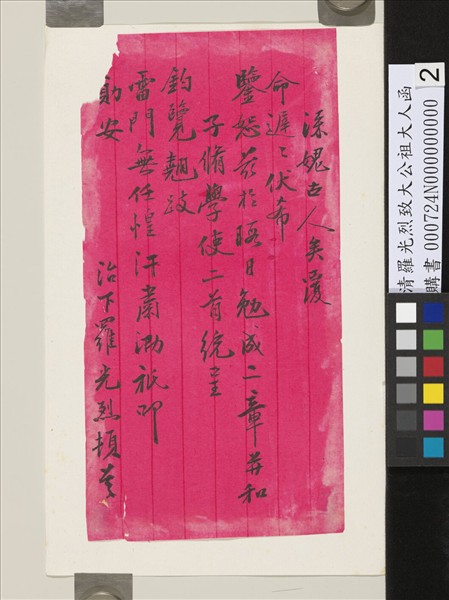 深媿古人矣覆
命遲遲伏希
鑒恕茲於暇日勉成二章并和
子脩學使二首統呈
鈞覽翹跂
雷門無任惶汗肅泐祇叩
勛安
治下羅光烈頓首
清羅光烈致大公祖大人函
購書 000724N000000000
2